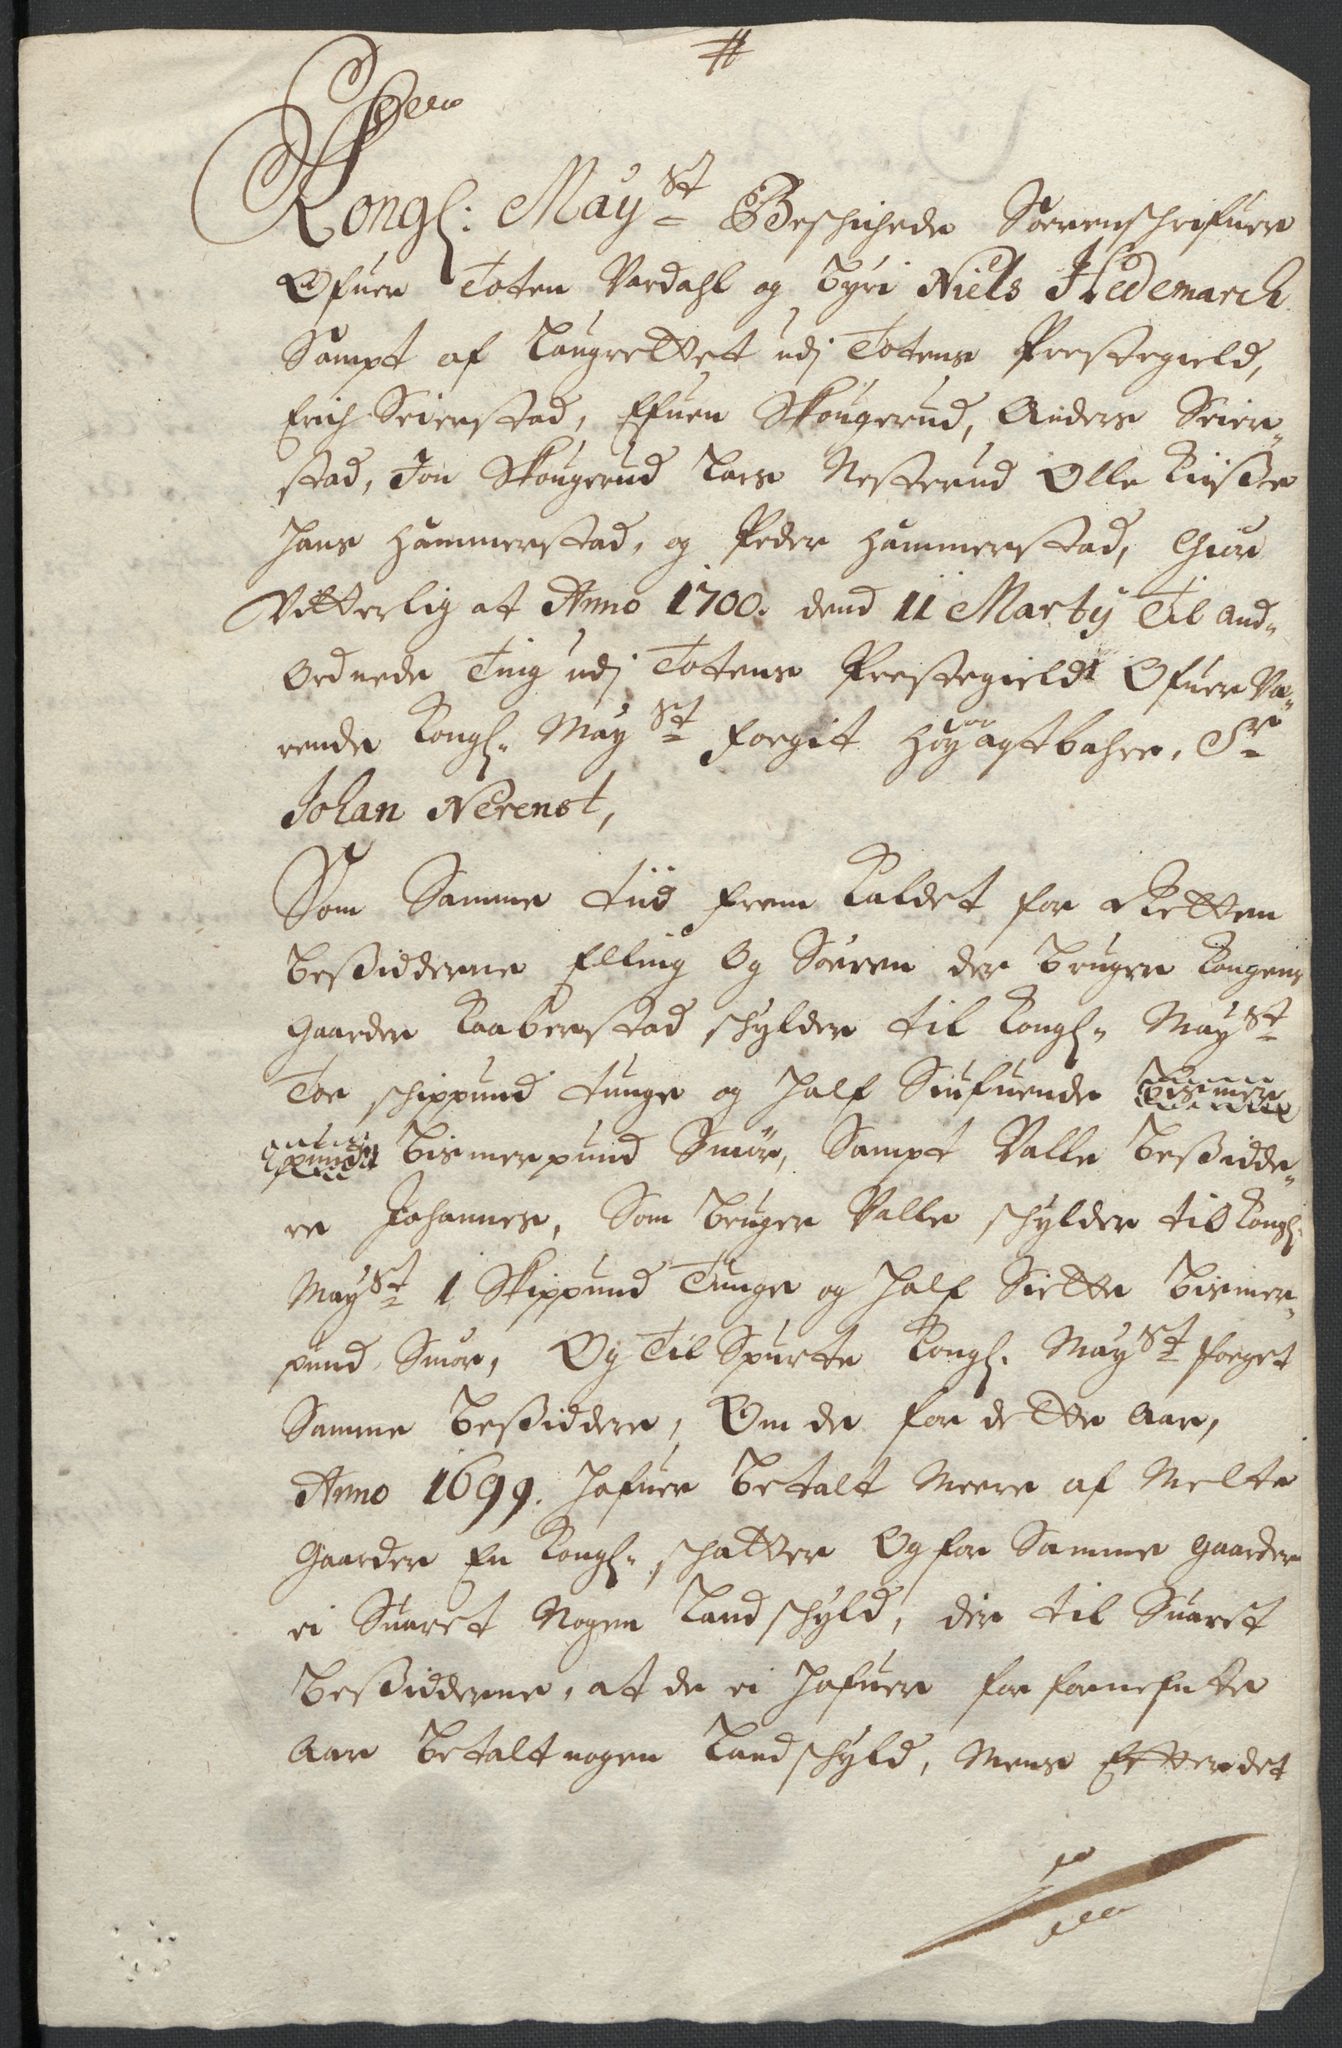 Kongl: May.st Beschichede Sorenschrifuer
Ofuer Toten Vardahl og Byri Niels Hedemarck
Sampt af Laugrettet udj Totens Prestegield,
Erich Seierstad, Efuen Skougerud, Anders Seier-
stad, Jon Skougerud Lars Nesterud Olle
Hans Hammerstad, og Peder Hammerstad, Giør
Vitterlig at Anno 1700. dend 11 Marty Til and-
ordnede Ting udj Totens Prestegield Ofuer Væ-
rende Kongl. May.st Foegit Høyagtbahre, Sr
Johan Nerenst,
Som Samme tiid frem Kaldet for Retten
besidderne Elling Og Søeren der bruger Kongens
Gaarder Kaaberstad schylder til Kongl. May.st
Toe schippund tunge og half Siufuende bismer
pund bismerpund Smør, Sampt Valle besidde-
re Johannes, Som bruger Valle schylder til Kongl.
May.st 1 Skippund Tunge og half Siette bismer-
pund Smør, Og Til Spurte Kongl. May.st foeget
Samme besiddere, Om de for dette Aar,
Anno 1699. hafuer betalt Meere af Melte
Gaarder En Kongl. schatter Og for Samme gaarder
ei Suaret Nogen Landschyld, der til Suaret
besidderne, at de ei hafuer for fornefnte
Aar betalt nogen Landschyld, Mens Efterdet